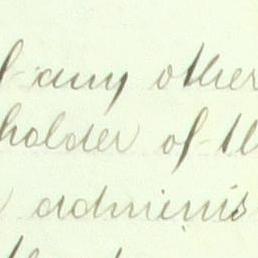 of any other
holder of th
adminis